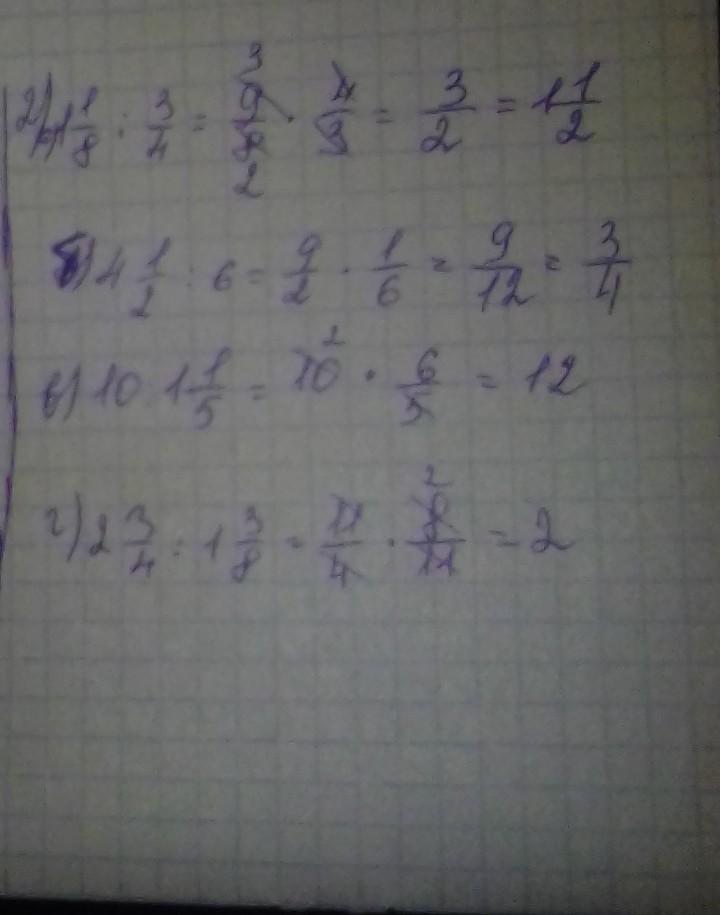 2) a) 1 1/8 : 3/4 = 9/8 · 4/3 = 3/2 = 1 1/2
б) 4 1/2 : 6 = 9/2 · 1/6 = 9/12 = 3/4
в) 10 · 1 1/5 = 10 · 6/5 = 12
г) 2 3/4 : 1 3/8 = 11/4 · 8/11 = 2